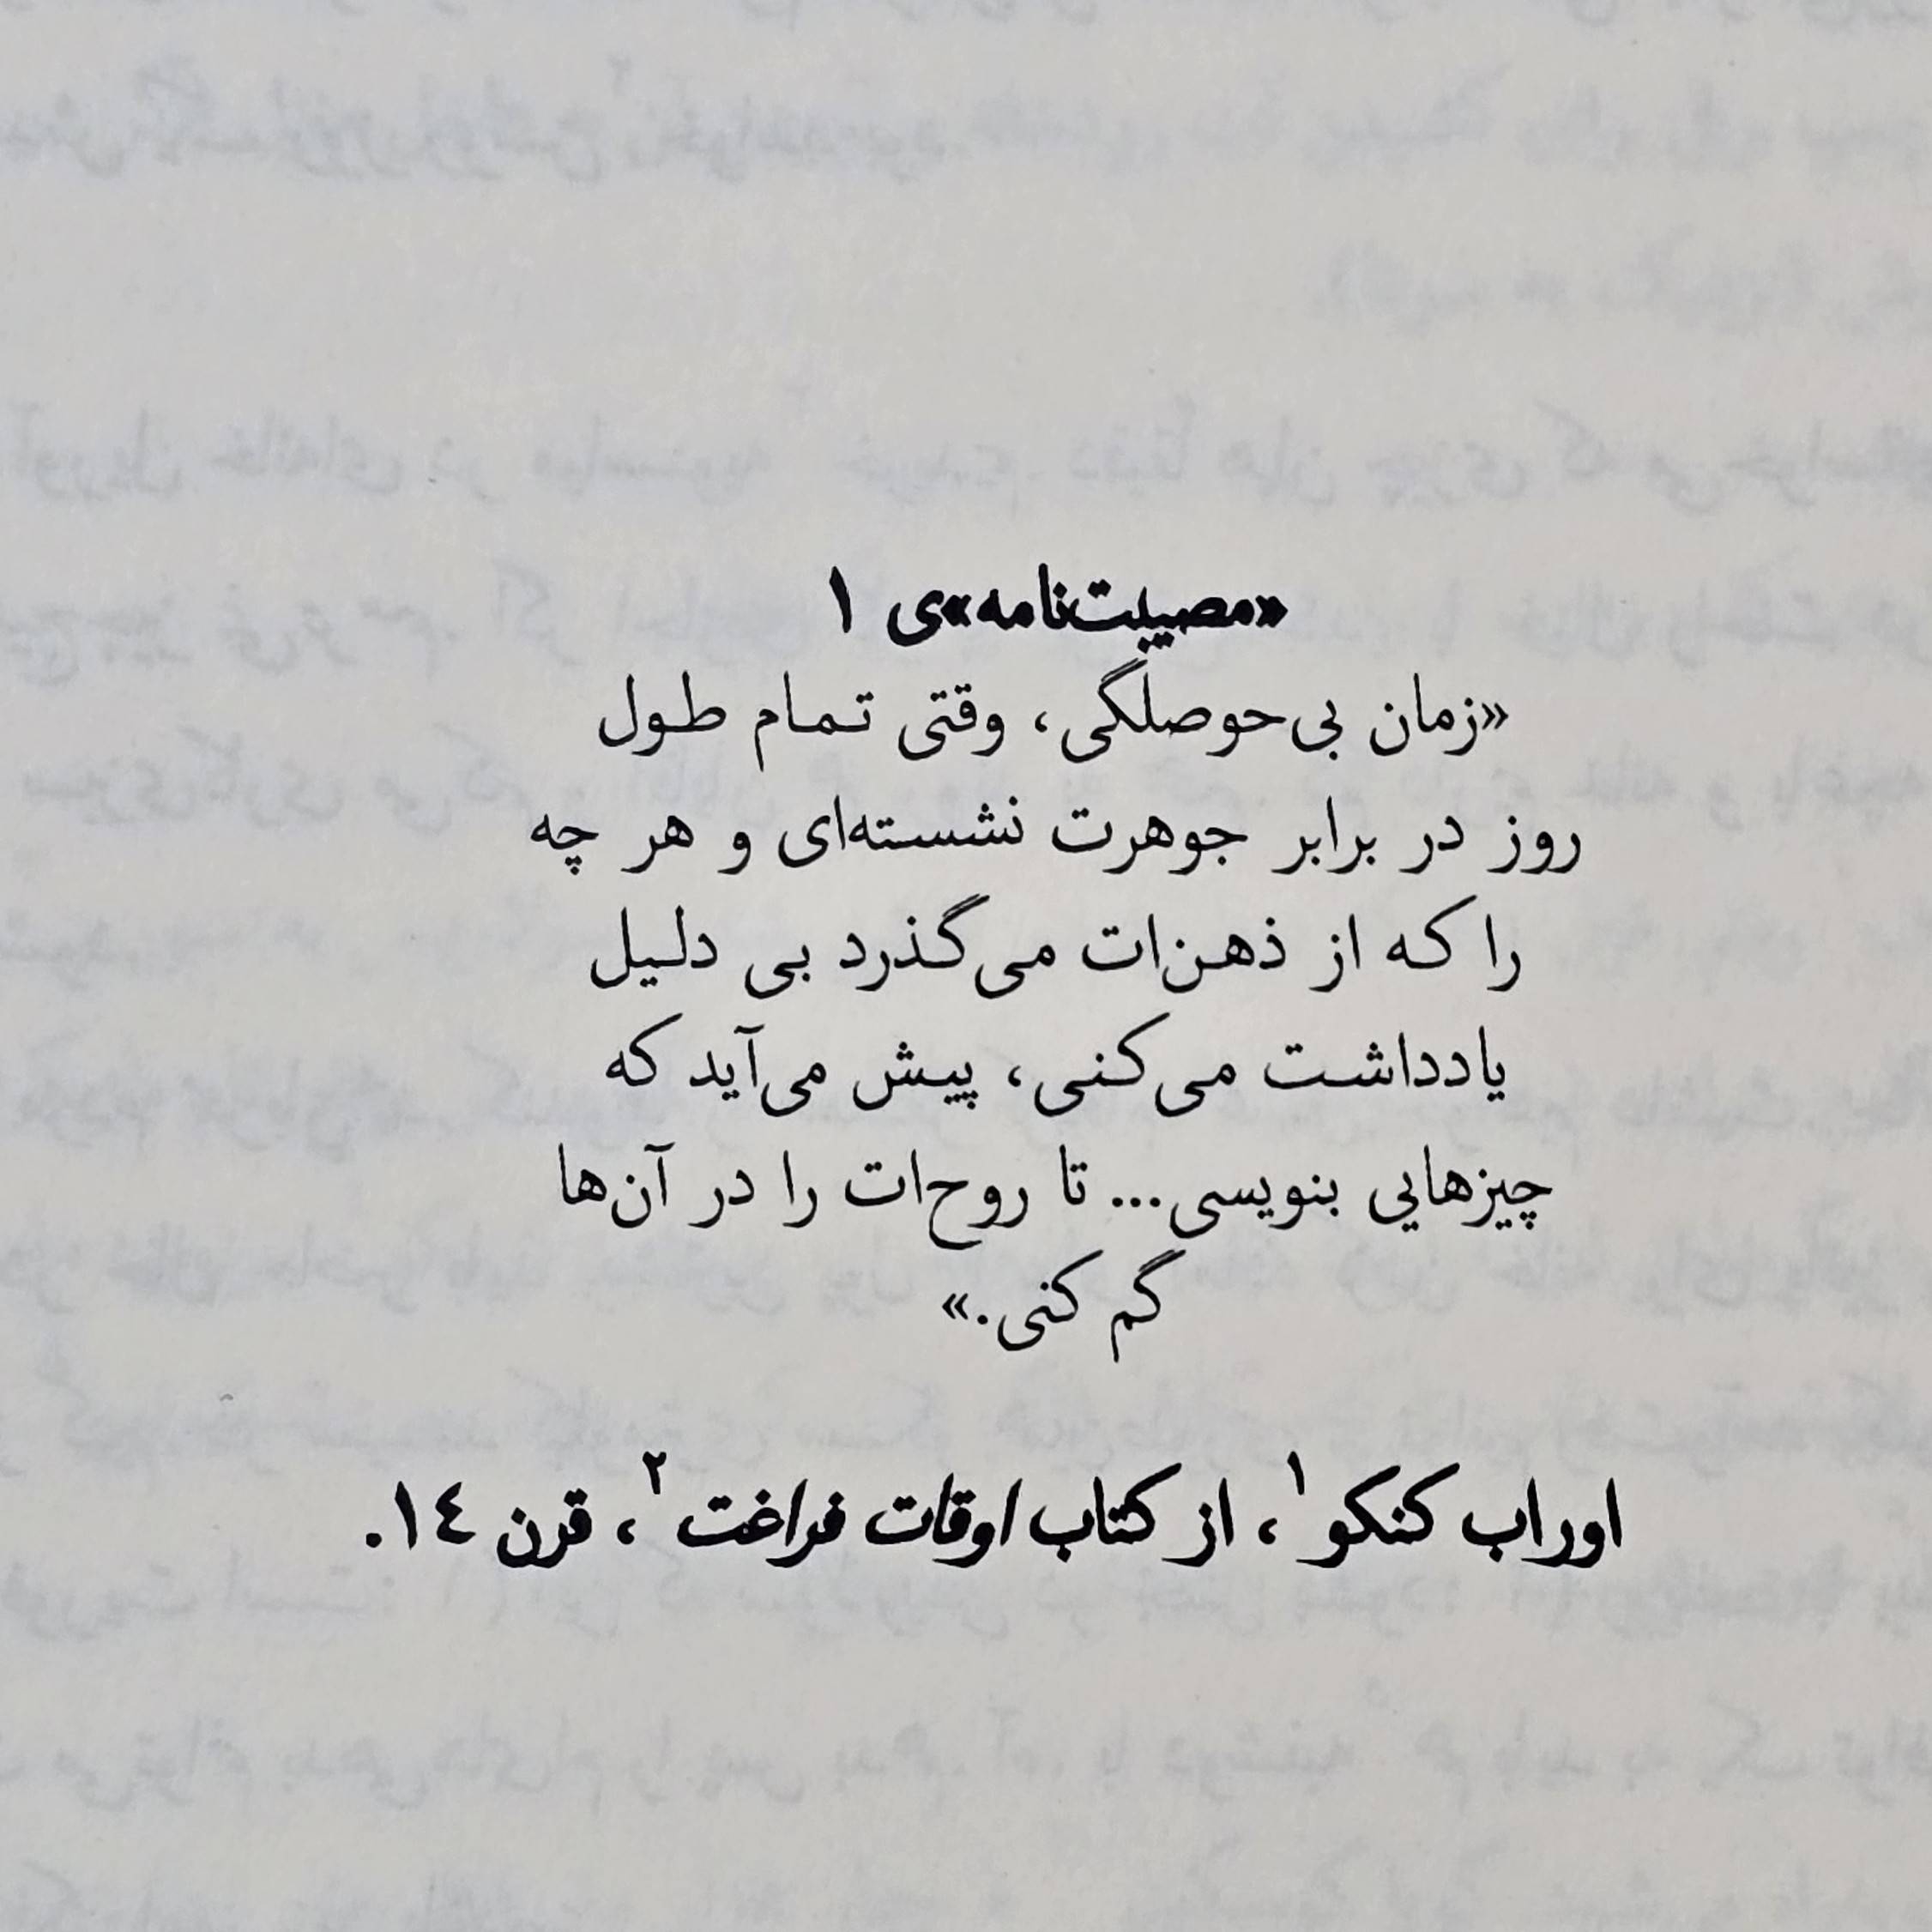 «مصیبت‌نامه»ی ۱
«زمان بی‌حوصلگی، وقتی تمام طول
روز در برابر جوهرت نشسته‌ای و هر چه
را که از ذهن‌ات می‌گذرد بی دلیل
یادداشت می‌کنی، پیش می‌آید که
چیزهایی بنویسی... تا روح‌ات را در آن‌ها
گم کنی.»
اوراب کنکو۱، از کتاب اوقات فراغت۲، قرن ۱٤.